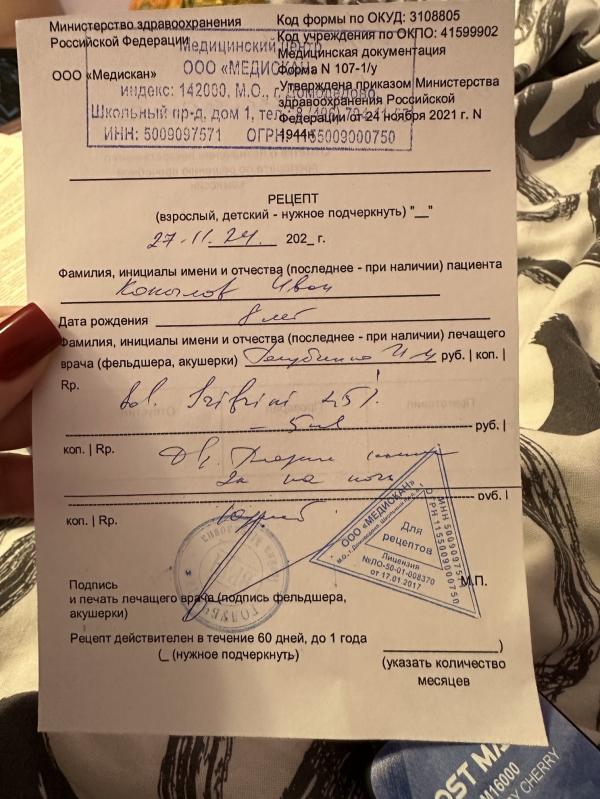 Министерство здравоохранения
Российской Федерации
ООО «Медискан»
Код формы по ОКУД: 3108805
Код учреждения по ОКПО: 41599902
Медицинская документация
Форма N 107-1/у
Утверждена приказом Министерства
здравоохранения Российской
Федерации от 24 ноября 2021 г. N
1944н
Медицинский центр
ООО «МЕДИСКАН»
индекс: 142000, М.О., г. Домодедово
Школьный пр-д, дом 1, тел.:
ИНН: 5009097571 ОГРН: 1155009000750
РЕЦЕПТ
(взрослый, детский - нужное подчеркнуть) "__"
27.11.24. 202_ г.
Фамилия, инициалы имени и отчества (последнее - при наличии) пациента
Копылов Иван
Дата рождения 8 лет
Фамилия, инициалы имени и отчества (последнее - при наличии) лечащего
врача (фельдшера, акушерки) руб. | коп. |
Rp.
Sol. Irifrini 2,5%
- 5 ml
руб. |
коп. | Rp.
на ночь
руб. |
коп. | Rp.
ООО «МЕДИСКАН»
ИНН 5009097571
ОГРН 1155009000750
Для
рецептов
Лицензия
№ЛО-50-01-008370
от 17.01.2017
М.П.
Подпись
и печать лечащего врача (подпись фельдшера,
акушерки)
Рецепт действителен в течение 60 дней, до 1 года
(_ (нужное подчеркнуть)
)
(указать количество
месяцев
OST MA
M16000
CHERRY